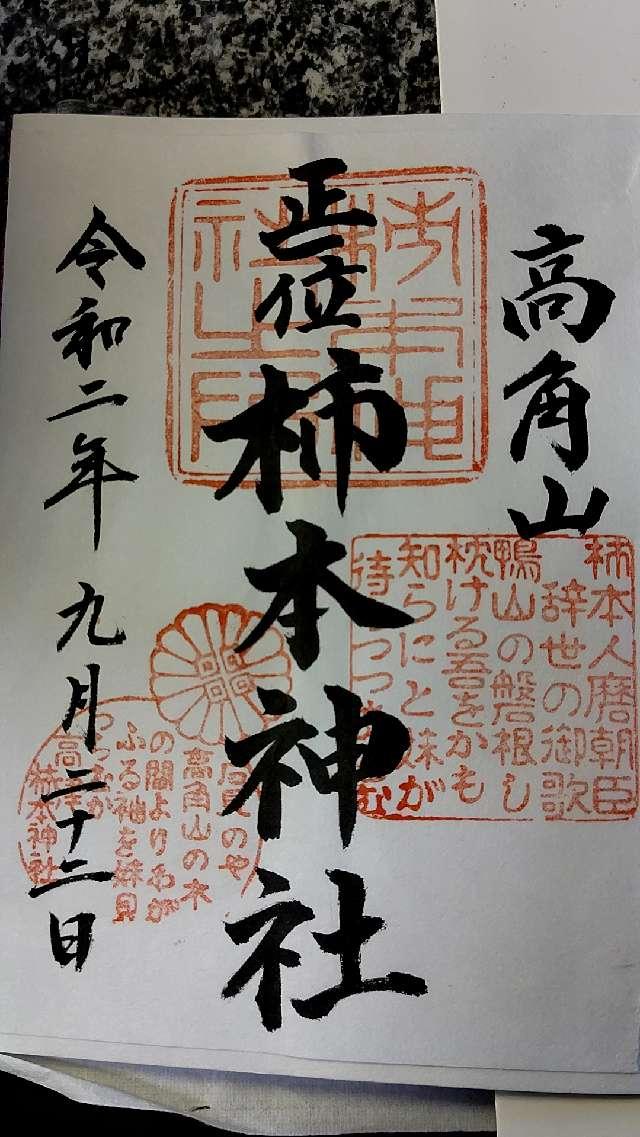 高角山
柿本人麿朝臣
辞世の御歌
鴨山の磐根し
枕ける吾をかも
知らにと妹が
待つつ む
正一位
柿本神社
石見のや
高角山の木
の間よりわが
ふる袖を妹見
つらむか
高津
柿本神社
令和二年 九月二十二日